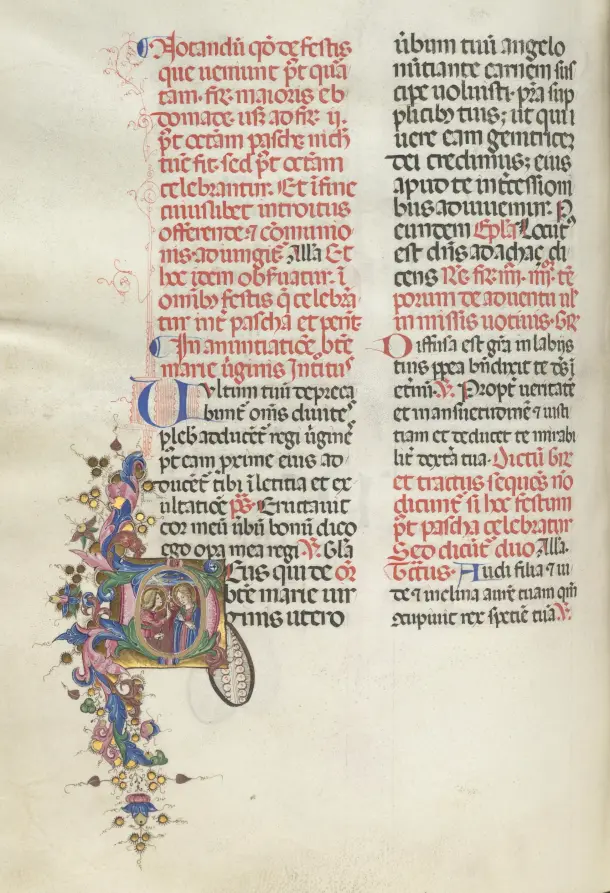 Notandū qd̄ de festis
que ueniunt pt̄ qua
tam. fer. maioris eb
domade usq̄ ad fer. ij.
pt̄ octam pasche nich
tūc fit. sed pt̄ octam
celebrantur. Et ī fine
cuiuslibet introitus
offerende ⁊ cōmunio
nis. adiungit̄ Alla Et
hoc idem obseruatur. ī
omnib; festis q̄ celebra
tur int̄ pascha et pent̄.
In anuntiatiōe bt̄e
marie uirginis Introitus
Vultum tuū depreca
bunt̄ oms̄ diuite
pleb adducēt̄ regi uirgine
pt̄ eam proxime eius ad
ducēt̄ tibi ī letitia et ex
ultatiōe p̄s. Eructauit
cor meū ūbū bonū dico
ego opa mea regi. V̄. Glā
Deus qui de or̄
bt̄e marie uir
ginis utero
ūbum tuū angelo
nūtiante carnem sus
cipe uoluisti. pr̄a sup
plicib; tuis; ut qui
uere eam genitricez
dei credimus; eius
apud te int̄cessioni
bus adiuuemur. P
eundem Epl̄a Locut̄
est dn̄s ad achaç di
cens Re. fer. iiij. iiij. tē
porum de aduentu ul̄
in missis uotiuis. Gr̄
Diffusa est gr̄a in labijs
tuis ppea bn̄dixit te ds̄ ī
etnū. V̄. Propt̄ ueritatē
et mansuetudinē ⁊ iusti
tiam et deducet te mirabi
lit̄ dextra tua. Dictū Gr̄
et tractus sequēs no
dicunt̄ si hoc festum
pt̄ pascha celebratur
Sed dicūt̄ duo Alla.
Tract̄us. Audi filia ⁊ ui
de ⁊ inclina aurē tuam qm̄
cōcupiuit rex speciē tuā. V̄.